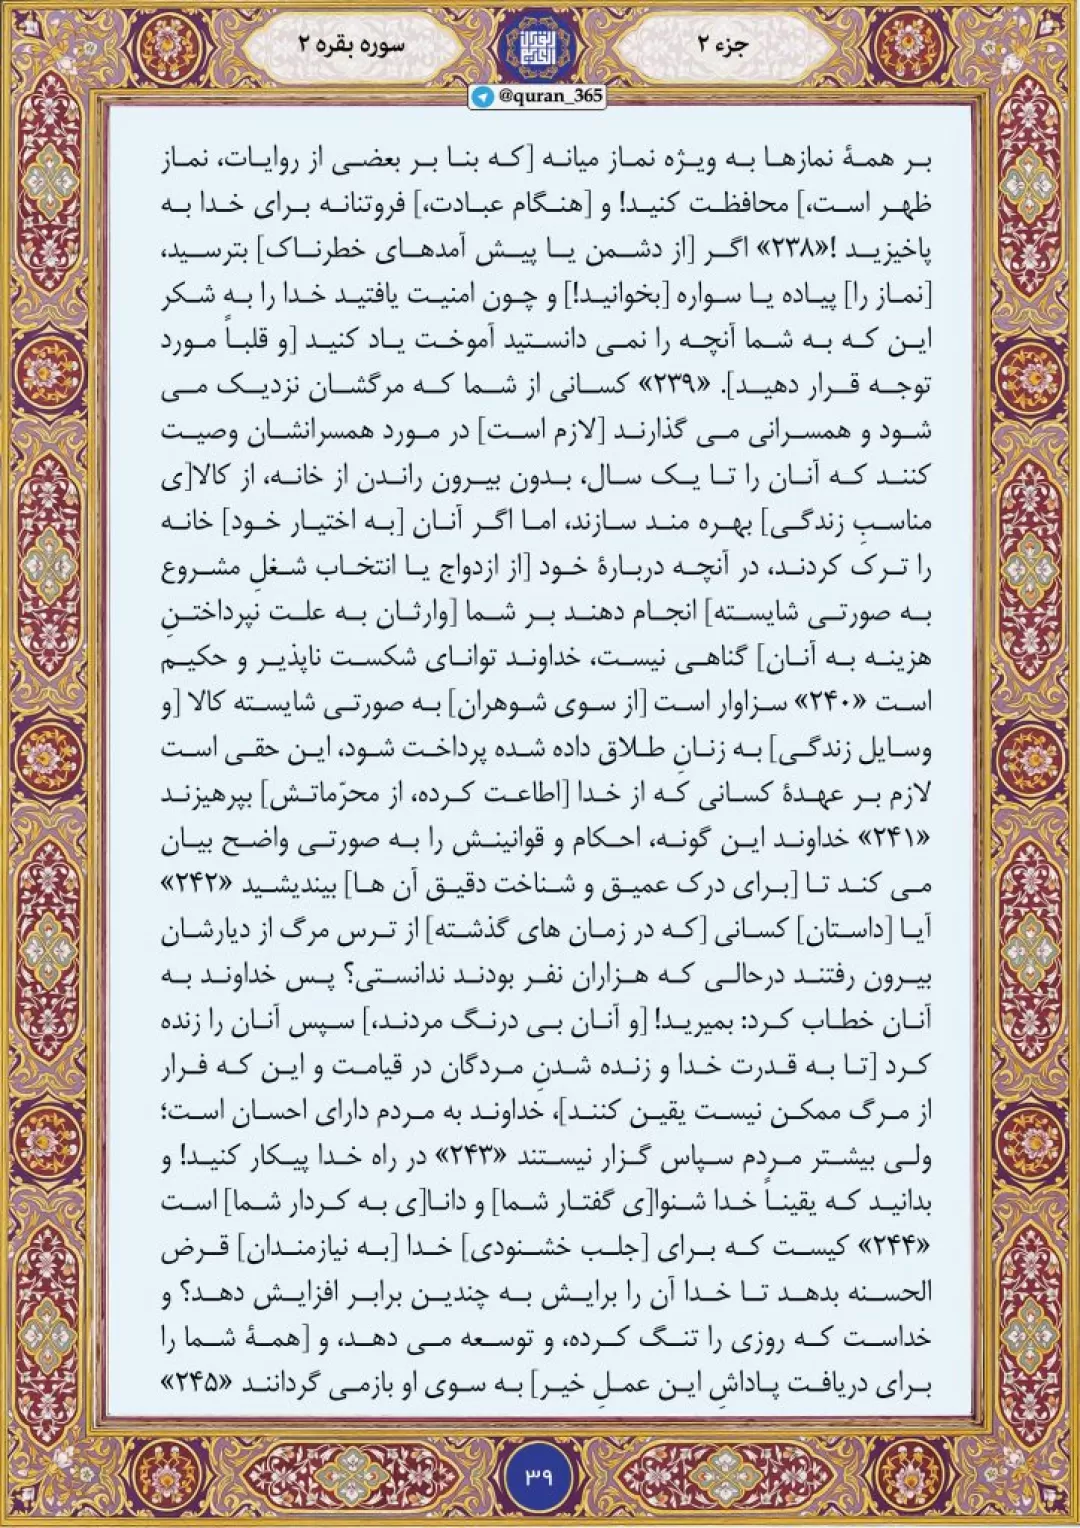 جزء ۲
سوره بقره ۲
@quran_365
بر همهٔ نمازها به ویژه نماز میانه [که بنا بر بعضی از روایات، نماز
ظهر است،] محافظت کنید! و [هنگام عبادت،] فروتنانه برای خدا به
پاخیزید !«۲۳۸» اگر [از دشمن یا پیش آمدهای خطرناک] بترسید،
[نماز را] پیاده یا سواره [بخوانید!] و چون امنیت یافتید خدا را به شکر
این که به شما آنچه را نمی دانستید آموخت یاد کنید [و قلباً مورد
توجه قرار دهید]. «۲۳۹» کسانی از شما که مرگشان نزدیک می
شود و همسرانی می گذارند [لازم است] در مورد همسرانشان وصیت
کنند که آنان را تا یک سال، بدون بیرون راندن از خانه، از کالا[ی
مناسبِ زندگی] بهره مند سازند، اما اگر آنان [به اختیار خود] خانه
را ترک کردند، در آنچه دربارهٔ خود [از ازدواج یا انتخاب شغلِ مشروع
به صورتی شایسته] انجام دهند بر شما [وارثان به علت نپرداختنِ
هزینه به آنان] گناهی نیست، خداوند توانای شکست ناپذیر و حکیم
است «۲۴۰» سزاوار است [از سوی شوهران] به صورتی شایسته کالا [و
وسایل زندگی] به زنانِ طلاق داده شده پرداخت شود، این حقی است
لازم بر عهدهٔ کسانی که از خدا [اطاعت کرده، از محرّماتش] بپرهیزند
«۲۴۱» خداوند این گونه، احکام و قوانینش را به صورتی واضح بیان
می کند تا [برای درک عمیق و شناخت دقیق آن ها] بیندیشید «۲۴۲»
آیا [داستان] کسانی [که در زمان های گذشته] از ترس مرگ از دیارشان
بیرون رفتند درحالی که هزاران نفر بودند ندانستی؟ پس خداوند به
آنان خطاب کرد: بمیرید! [و آنان بی درنگ مردند،] سپس آنان را زنده
کرد [تا به قدرت خدا و زنده شدنِ مردگان در قیامت و این که فرار
از مرگ ممکن نیست یقین کنند]، خداوند به مردم دارای احسان است؛
ولی بیشتر مردم سپاس گزار نیستند «۲۴۳» در راه خدا پیکار کنید! و
بدانید که یقیناً خدا شنوا[ی گفتار شما] و دانا[ی به کردار شما] است
«۲۴۴» کیست که برای [جلب خشنودی] خدا [به نیازمندان] قرض
الحسنه بدهد تا خدا آن را برایش به چندین برابر افزایش دهد؟ و
خداست که روزی را تنگ کرده، و توسعه می دهد، و [همهٔ شما را
برای دریافت پاداشِ این عملِ خیر] به سوی او بازمی گردانند «۲۴۵»
۳۹